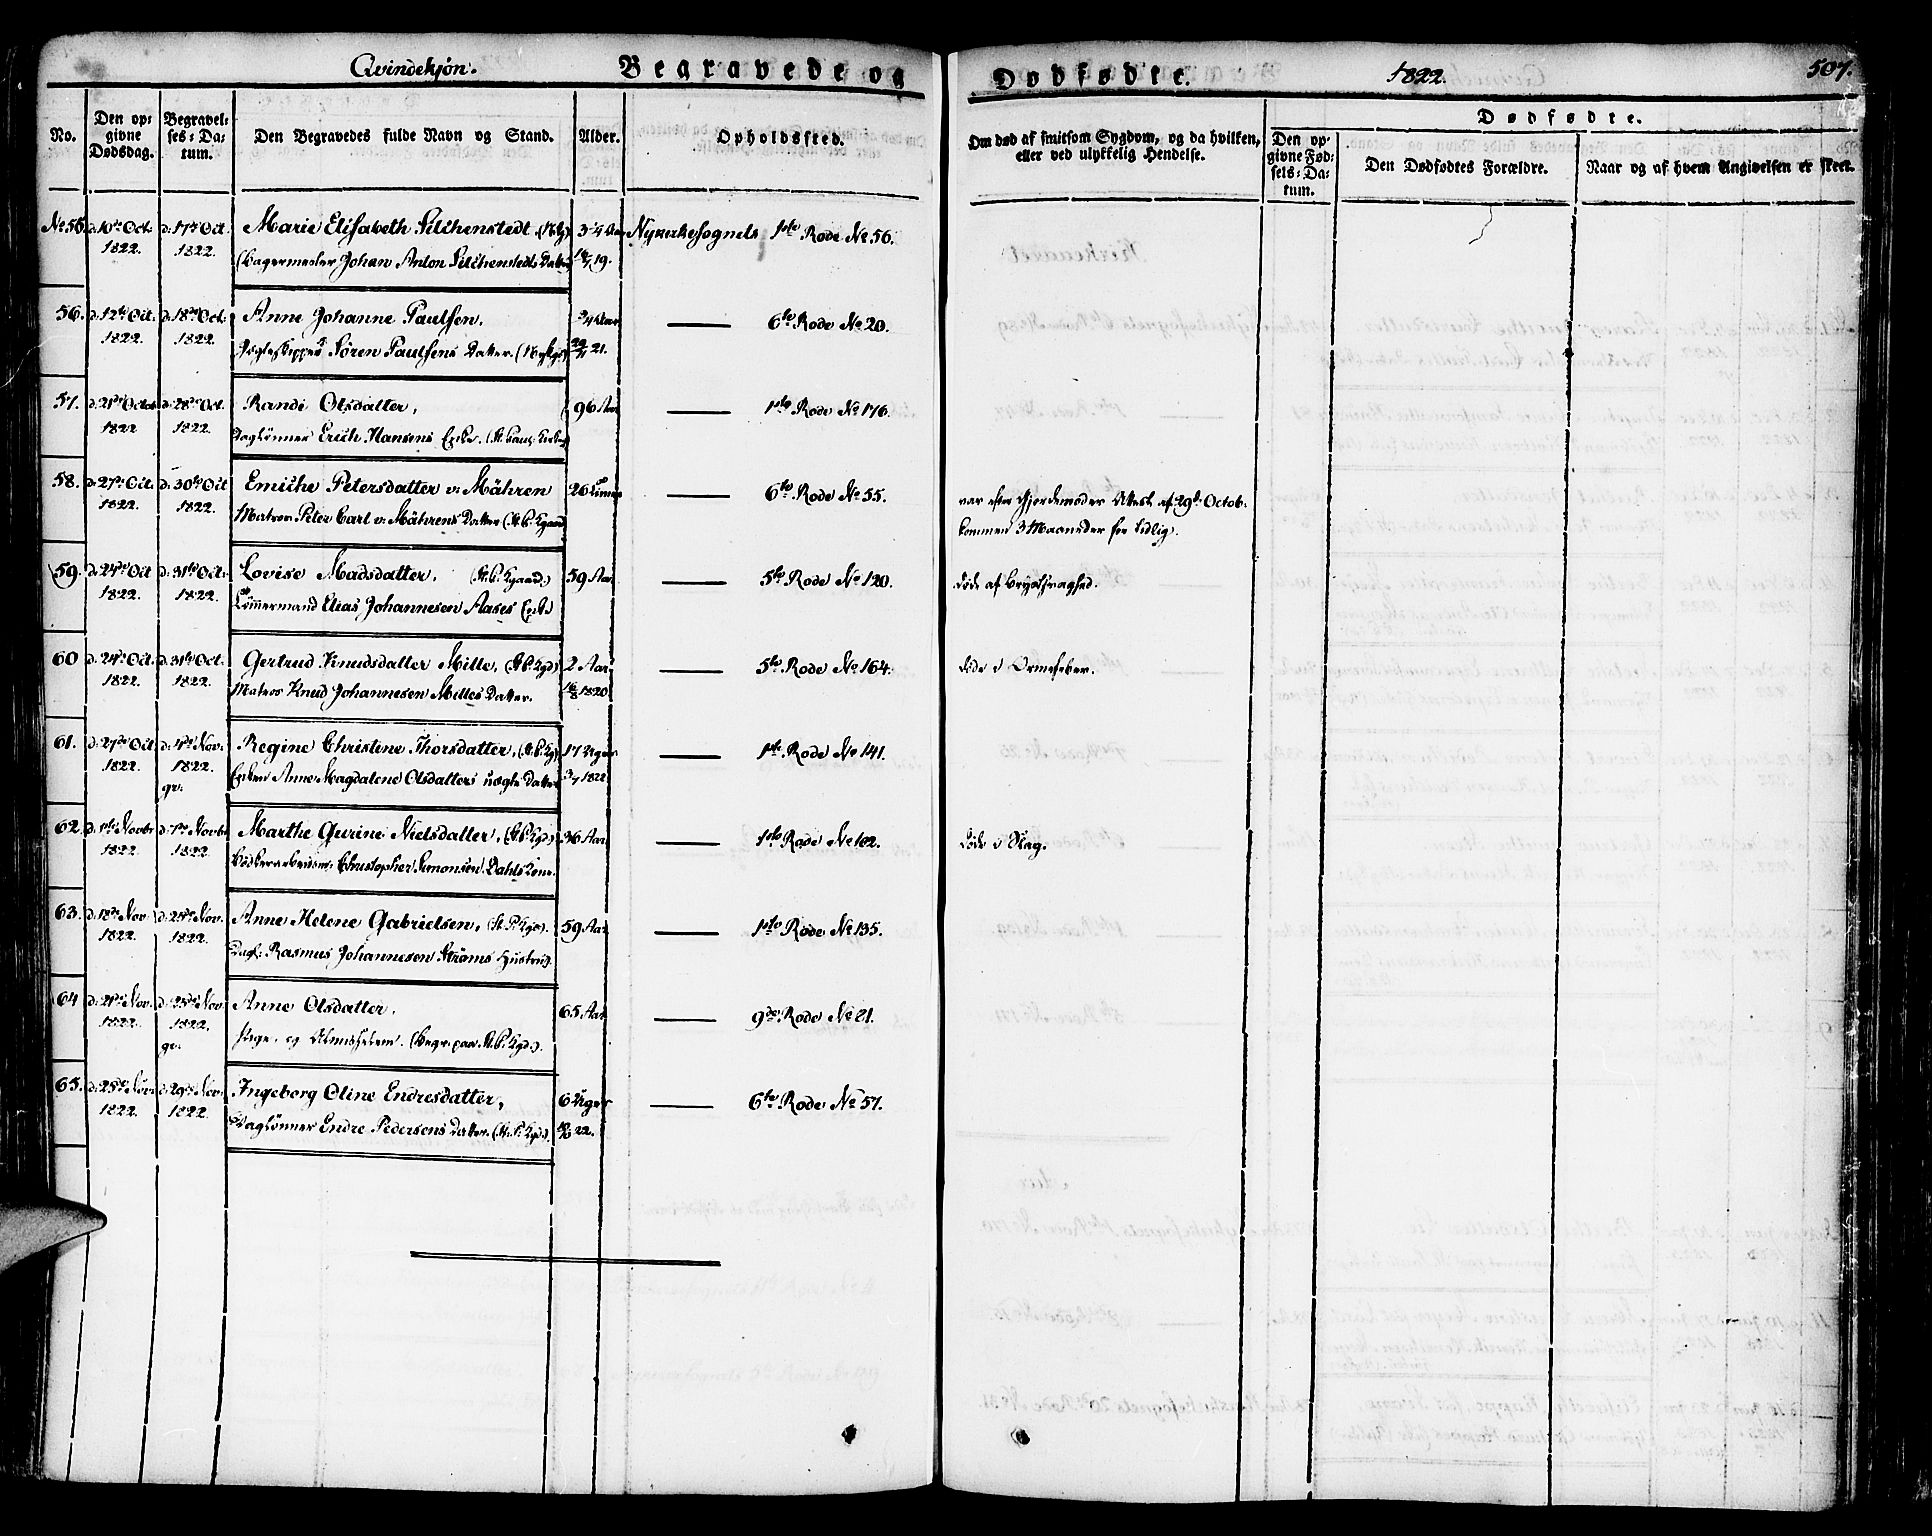 Qvindekjøn.
Begravede og
Dødfødte.
1822.
507.
No.
Den opgivne Dødsdag.
Begravelses-Datum.
Den Begravedes fulde Navn og Stand.
Alder.
Opholdssted.
Om død af smitsom Sygdom, og da hvilken, eller ved ulykkelig Hendelse.
Dødfødte.
Den opgivne Fødsels-Datum.
Den Dødfødtes Forældre.
Naar og af hvem Angivelsen er skeet.
No 55 d: 10de Oct. 1822. d: 17de Oct 1822. Marie Elisabeth Silchenstedt 3 1/4 Aar Nykirkesognets 1ste Rode No 56.
Bagermester Johan Anton Silchenstedts Datter 19.
56. d: 12te Oct. 1822. d: 18de Oct: 1822. Anne Johanne Paulsen. 3/4 Aar 6te Rode No 20.
Søren Paulsens Datter. 21.
57. d: 21de Octob 1822 d: 28de Oct. 1822. Randi Olsdatter, 96 Aar 1ste Rode No 176.
Daglønner Erich Hansens Enke.
58. d: 27de Oct. 1822. d: 30te Oct 1822. Emiche Petersdatter v: Mähren 26 6te Rode No 55. var efter Gjordemoder Attest af 29de Octob:
Matros Peter Carl v: Mährens Datter (St. P. Kgaard) kommen 3 Maaneder for tidlig.
59. d: 24de Oct 1822. d: 31te Oct: 1822. Lovise Madsdatter. (St. P. Kgaard) 59 Aar 5te Rode No 120. døde af Brystsvaghed.
Tømmermand Elias Johannesen Aases Enke
60 d: 24de Oct. 1822. d: 31te Oct: 1822. Gertrud Knudsdatter Mille, (St. P. Kgd.) 2 Aar 5te Rode No 164. døde i Ormefeber.
Matros Knud Johannesen Milles Datter. 16/8 1820
61. d: 27de Oct 1822. d: 4de Nov: 1822. gr: Regine Christine Thorsdatter, (St. P. Kg) 17 Uger 1ste Rode No 141.
Enken Anne Magdalene Olsdatters uægte Datter 3/7 1822
62. d: 1ste Novbr 1822. d: 7de Novbr 1822. Marthe Gurine Nielsdatter, (St. P. Kgd.) 36 Aar 1ste Rode No 102. døde i Slag.
Christopher Simonsen Dahls Kone.
63. d: 18de Nov: 1822. d: 25de Nov. 1822. Anne Helene Gabrielsen, (St. P. Kgd). 59 Aar 1ste Rode No 135.
Dagl: Rasmus Johannesen Strøms Hustrue.
64 d: 21de Nov. 1822. d: 25de Nov: 1822. gr: Anne Olsdatter. 65 Aar 9de Rode No 21.
Pige, og Almislem. (Begr. paa St. P. Kgd.).
65. d: 25de Nov: 1822. d: 29de Nov: 1822. Ingeborg Oline Endresdatter, 6 Uger 6te Rode No 57.
Daglønner Endre Pedersens Datter. (St. P. Kgd.) 22.